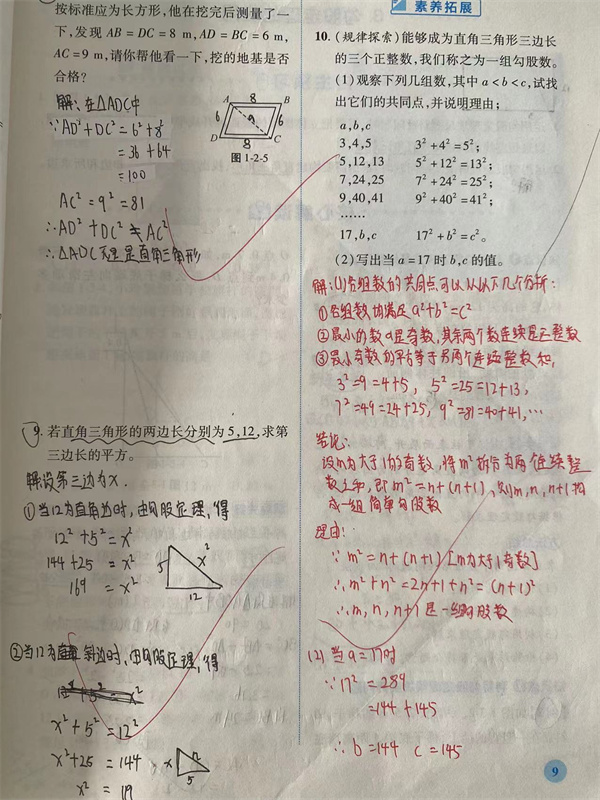 按标准应为长方形,他在挖完后测量了一
下,发现 AB = DC = 8 m, AD = BC = 6 m,
AC = 9 m,请你帮他看一下,挖的地基是否
合格?
解:在△ADC中
∵AD²+DC²=6²+8²
=36+64
=100
AC²=9²=81
∴AD²+DC²≠AC²
∴△ADC不是直角三角形
A 8 B
6 9 6
D 8 C
图 1-2-5
9. 若直角三角形的两边长分别为 5,12,求第
三边长的平方。
解设第三边为x.
①当12为直角边时,由勾股定理,得
12²+5²=x²
144+25=x²
169=x²
5 x²
12
②当12为斜边时,由勾股定理,得
x²+5²=12²
x²+25=144
x²=119
x 12
5
素养拓展
10. (规律探索)能够成为直角三角形三边长
的三个正整数,我们称之为一组勾股数。
(1)观察下列几组数,其中 a<b<c,试找
出它们的共同点,并说明理由;
a,b,c
3,4,5 3²+4²=5²;
5,12,13 5²+12²=13²;
7,24,25 7²+24²=25²;
9,40,41 9²+40²=41²;
……
17,b,c 17²+b²=c²。
(2)写出当 a=17 时 b,c 的值。
解:(1)各组数的共同点可以从以下几个分析:
①各组数均满足a²+b²=c²
②最小的数a是奇数,其余两个数连续是正整数
③最小奇数的平方等于另两个连续整数和,
3²=9=4+5, 5²=25=12+13,
7²=49=24+25, 9²=81=40+41,…
结论:
设m为大于1的奇数,将m²拆分为两个连续整
数之和,即m²=n+(n+1),则m,n,n+1构
成一组简单勾股数
理由:
∵m²=n+(n+1)[m为大于1奇数]
∴m²+n²=2n+1+n²=(n+1)²
∴m,n,n+1是一组勾股数
(2) 当a=17时
∵17²=289
=144+145
∴b=144 c=145
9